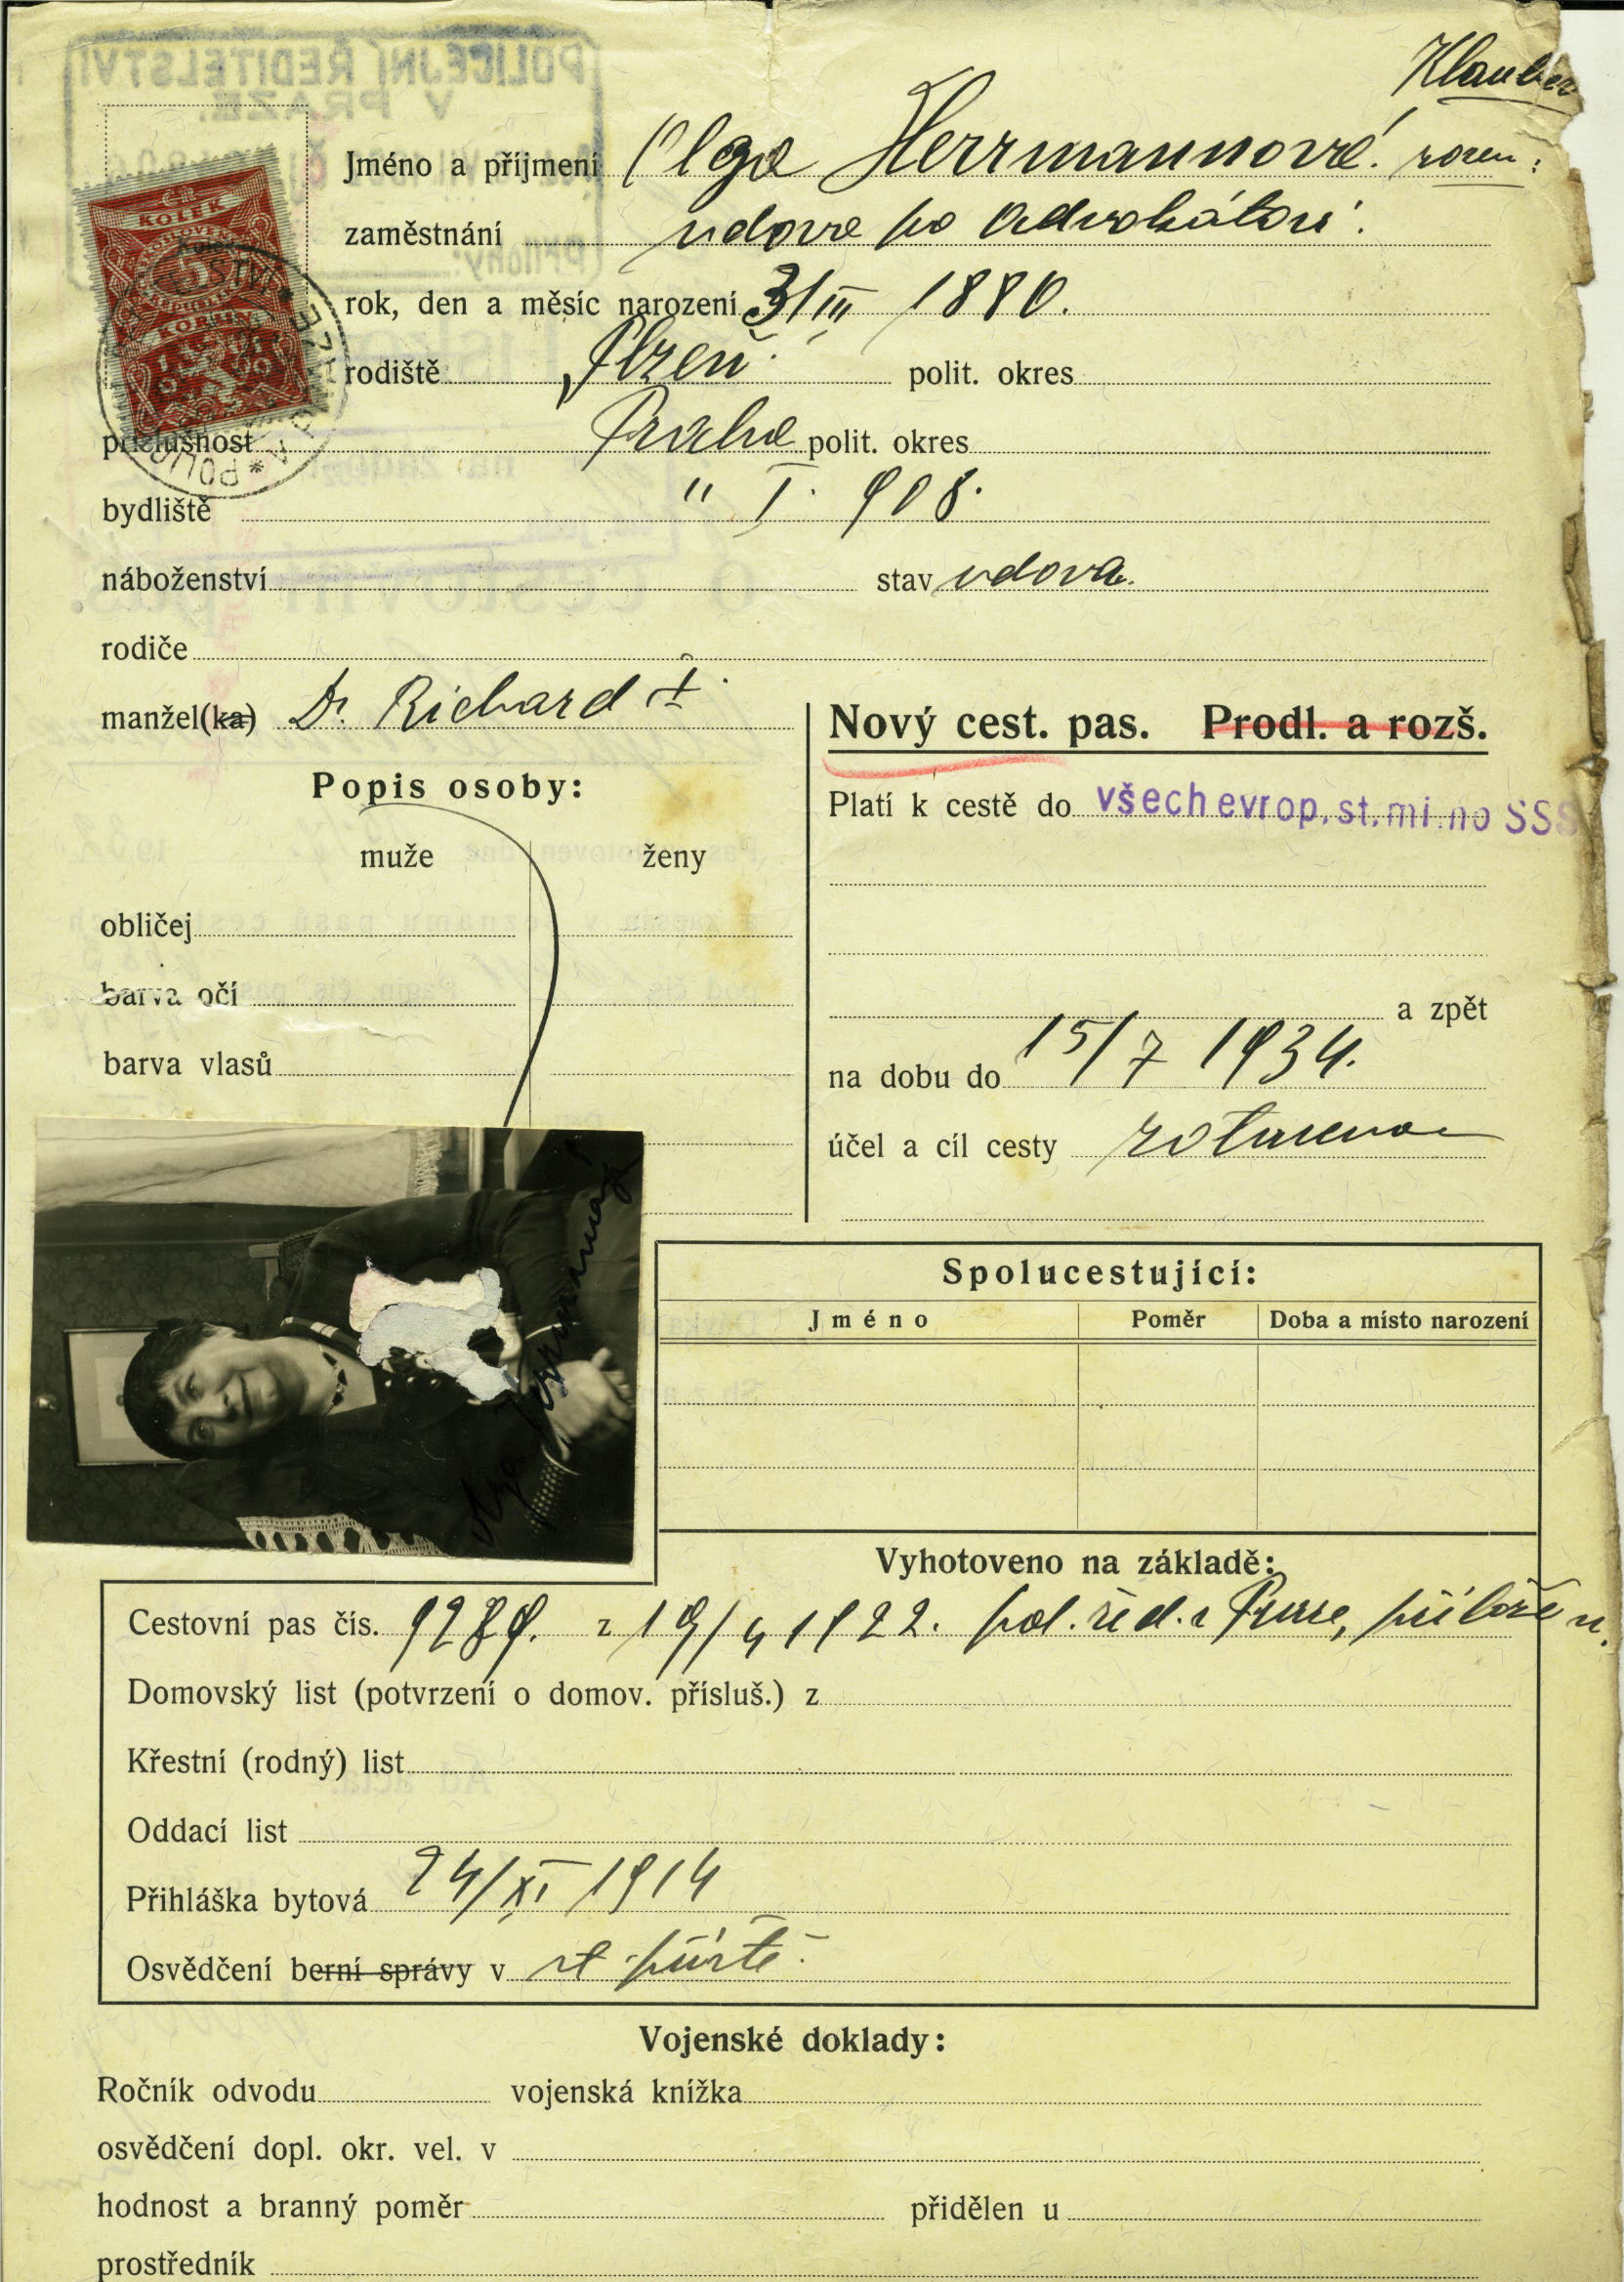 Klauber
Jméno a příjmení Olga Herrmannová. rozen:
zaměstnání vdova po advokátovi.
rok, den a měsíc narození 3/III 1880.
rodiště Plzeň. polit. okres
příslušnost Praha polit. okres
bydliště " I. 908.
náboženství stav vdova.
rodiče
manžel(ka) Dr. Richard †.
Nový cest. pas. Prodl. a rozš.
Popis osoby:
Platí k cestě do všech evrop. st. mimo SSS
muže ženy
obličej
barva očí
a zpět
barva vlasů
na dobu do 15/7 1934.
účel a cíl cesty zotavená
Olga Herrmannová
Spolucestující:
Jméno Poměr Doba a místo narození
Vyhotoveno na základě:
Cestovní pas čís. 9289. z 19/4 1922. pol. řed. v Praze, přilože n.
Domovský list (potvrzení o domov. přísluš.) z
Křestní (rodný) list
Oddací list
Přihláška bytová 24/XI 1914
Osvědčení berní správy v
Vojenské doklady:
Ročník odvodu vojenská knížka
osvědčení dopl. okr. vel. v
hodnost a branný poměr přidělen u
prostředník
ČR
KOLEK
5
KORUN
POLICEJNÍ ŘEDITELSTVÍ
V PRAZE.
Přílohy: